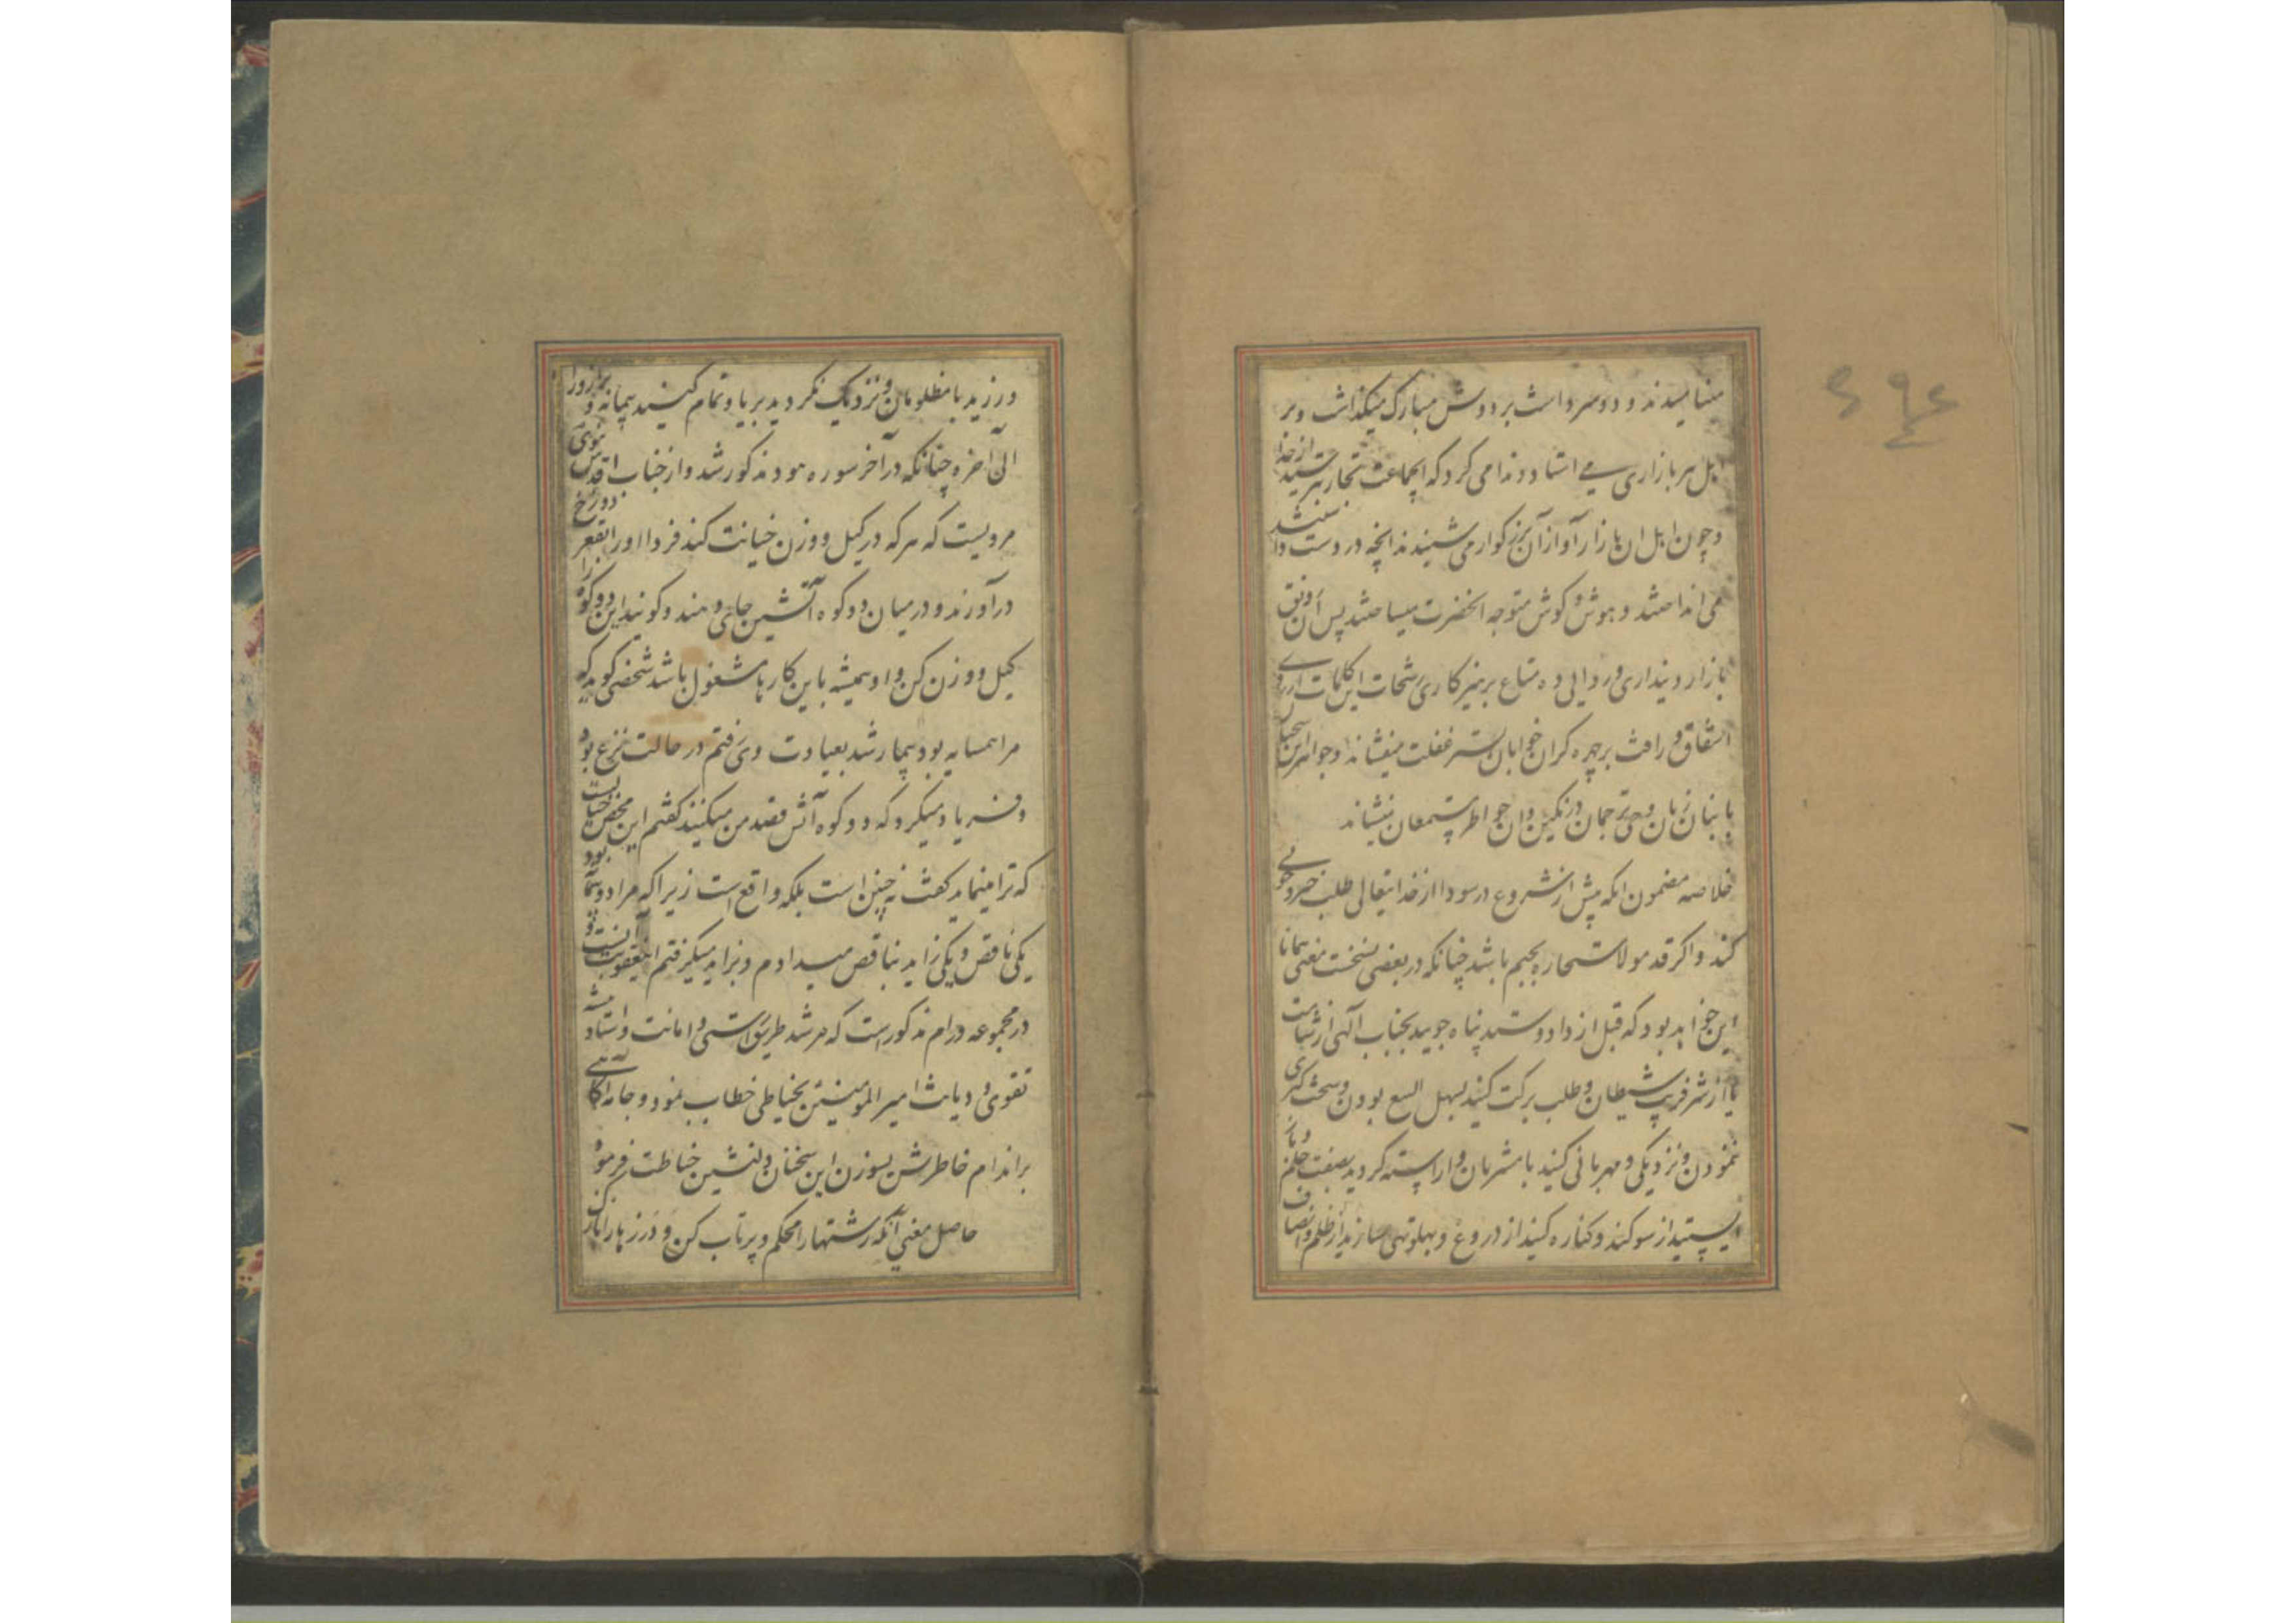 مینامیدند و دو سر داشت بر دوش مبارک میکذاشت و بر
اهل هر بازاری می استاد و ندا می کرد که ایجماعت تجار بترسید از خدا
و چون اهل ان بازار آواز آن بزرکوار می شنیدند انچه در دست داشتند
می انداختند و بهوش و کوش متوجه انحضرت میساختند پس آن رونق
بازار دینداری و روایی ده متاع پرهیزکاری رشحات این کلمات از روی
اشفاق و رافت بر چهره کران خوابان بستر غفلت میفشاند و جواهر این سخنان
با بنان زبان وحی ترجمان در نکین دان خواطر مستمعان مینشاند
خلاصه مضمون انکه پیش از شروع در سودا از خدایتعالی طلب خیر و خوبی
کند و اکر قدموا الاستجاره بجیم باشد چنانکه در بعضی نسخست معنی همانا
این خواهد بود که قبل از داد و ستد پناه جویید بجناب آلهی از
یا از شر فریب شیطان و طلب برکت کنید بسهل البیع بودن و سخت کیری
ننمودن و نزدیکی و مهربانی کنید با مشتریان و اراسته کردید بصفت حلم و باز
ایستید از سوکند و کناره کنید از دروغ و پهلو تهی سازید از ظلم و انصاف
ورزید با مظلومان و نزدیک نکردید بربا و تمام کنید پیمانه و ترازو را
الی آخره چنانکه در آخر سوره هود مذکور شد و از جناب اقدس نبوی
مرویست که هر که در کیل و وزن خیانت کند فردا او را بقعر دوزخ
در آورند و در میان دو کوه آتشین جای دهند و کویند این دو کوه را
کیل و وزن کن و او همیشه باین کارها مشغول باشد شخصی کوید که
مرا همسایه بود بیمار شد بعیادت وی رفتم در حالت نزع بود
و فریاد میکرد که دو کوه آتش قصد من میکنند کفتم این محض خیالست
که ترا مینماید کفت نه چنین است بلکه واقع است زیرا که مرا دو پیمانه بود
یکی ناقص و یکی زاید بناقص میدادم و بزاید میکرفتم این عقوبت آنست و
در مجموعه ورام مذکور است که مرشد طریق راستی و امانت و استاد پیشه
تقوی و دیانت امیر المؤمنین بخیاطی خطاب نمود و جامه آکاهی
بر اندام خاطرش بسوزن این سخنان دلنشین خیاطت فرمود
حاصل معنی آنکه رشتها را محکم و پرتاب کن و درزها را باریک